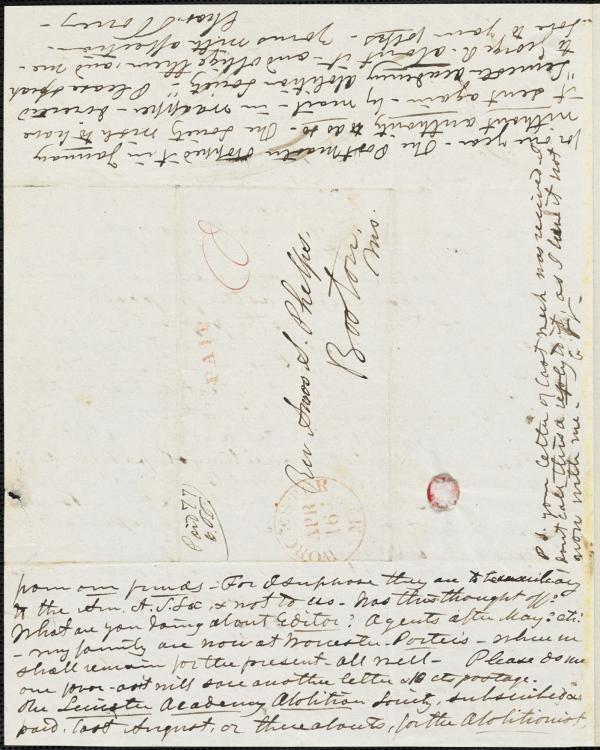 from our funds - For I suppose they are to be auxiliary
to the Am. A. S. So. & not to us. Was this thought of?
What are you doing about Editor? Agents after May? &c:
- My family are now at Worcester - Porter's - where we
shall remain for the present - all well - Please do me
one favor - and will save another letter & 10 cts postage.
The Leicester Academy Abolition Society, subscribed &
paid, last August, or thereabouts, for the Abolitionist,
for one year - The Postmaster stopped it in January
without authority to do so - The Society wish to have
it sent again - by mail - in wrapper - directed
"Leicester Academy Abolition Society" Please speak
to George R. about it - and oblige them - and me -
Love to your wife - Yours with affection -
Chas. T. Torrey -
P.S. your letter of last week was received. I
don't call this a reply to it, as I have it not
now with me -
Rev Amos A. Phelps,
Boston,
Ms.
PAID
Paid
WORCESTER
APR
16